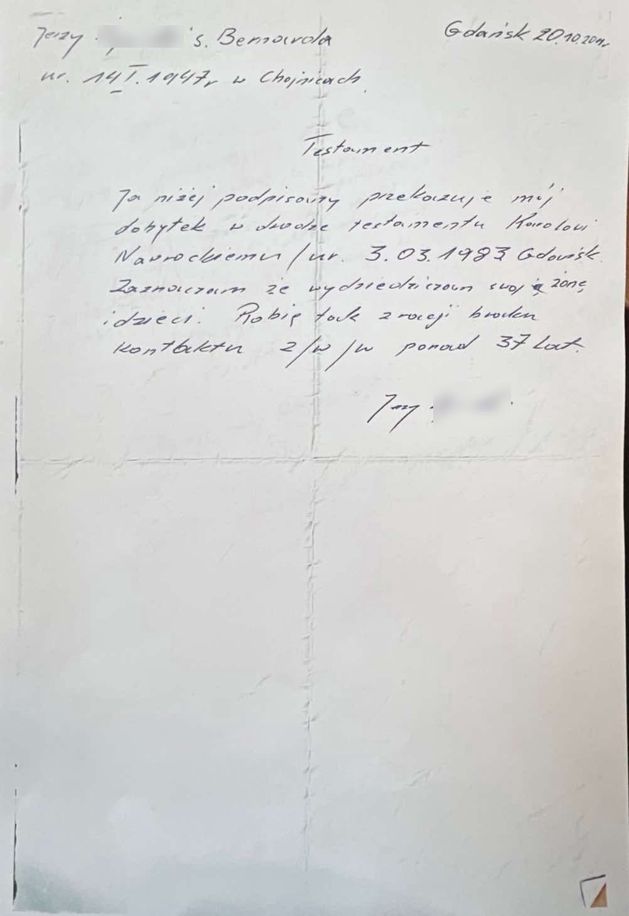 Jerzy s. Bernarda
Gdańsk 20.10.2011r
ur. 14 I. 1947r w Chojnicach.
Testament
Ja niżej podpisany przekazuje mój
dobytek w drodze testamentu Karolowi
Nawrockiemu /ur. 3.03.1983 Gdańsk.
Zaznaczam że wydziedziczam swoję żonę
i dzieci. Robię tak z racji braku
kontaktu z/w/w ponad 37 lat.
Jerzy